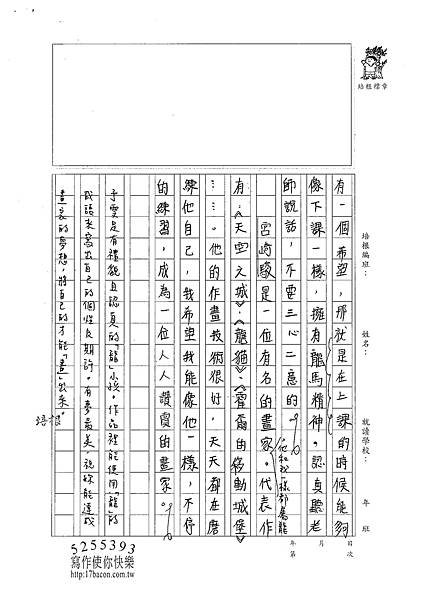 培根標章
培根編班：
姓名：
就讀學校：
年 班
月 日
年 第 次
有一個希望，那就是在上課的時候能夠
像下課一樣，擁有龍馬精神。認真聽老
師說話，不要三心二意的。
宮崎駿是一位有名的畫家。他和我一樣都屬龍代表作
有：《天空之城》、《龍貓》、《霍爾的移動城堡》
……。他的作畫技術很好，天天都在磨
練他自己，我希望我能像他一樣，不停
的練習，成為一位人人讚賞的畫家。
子雯是有禮貌且認真的「龍」小孩。作品裡能使用「龍」的
成語來寫出自己的個性及期許。有夢最美，祝妳能達成
畫家的夢想，將自己的才能「畫」出來。
培根
5255393
寫作使你快樂
http://17bacon.com.tw